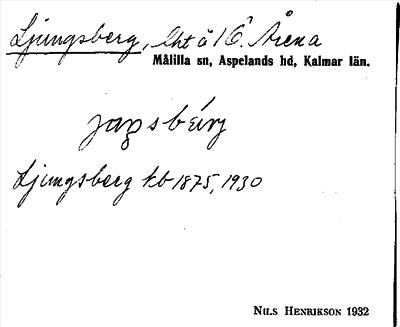 Ljungsberg, lht å 1 Ö. Årena
Målilla sn, Aspelands hd, Kalmar län.
Ljungsberg kb 1875, 1930
NILS HENRIKSON 1932